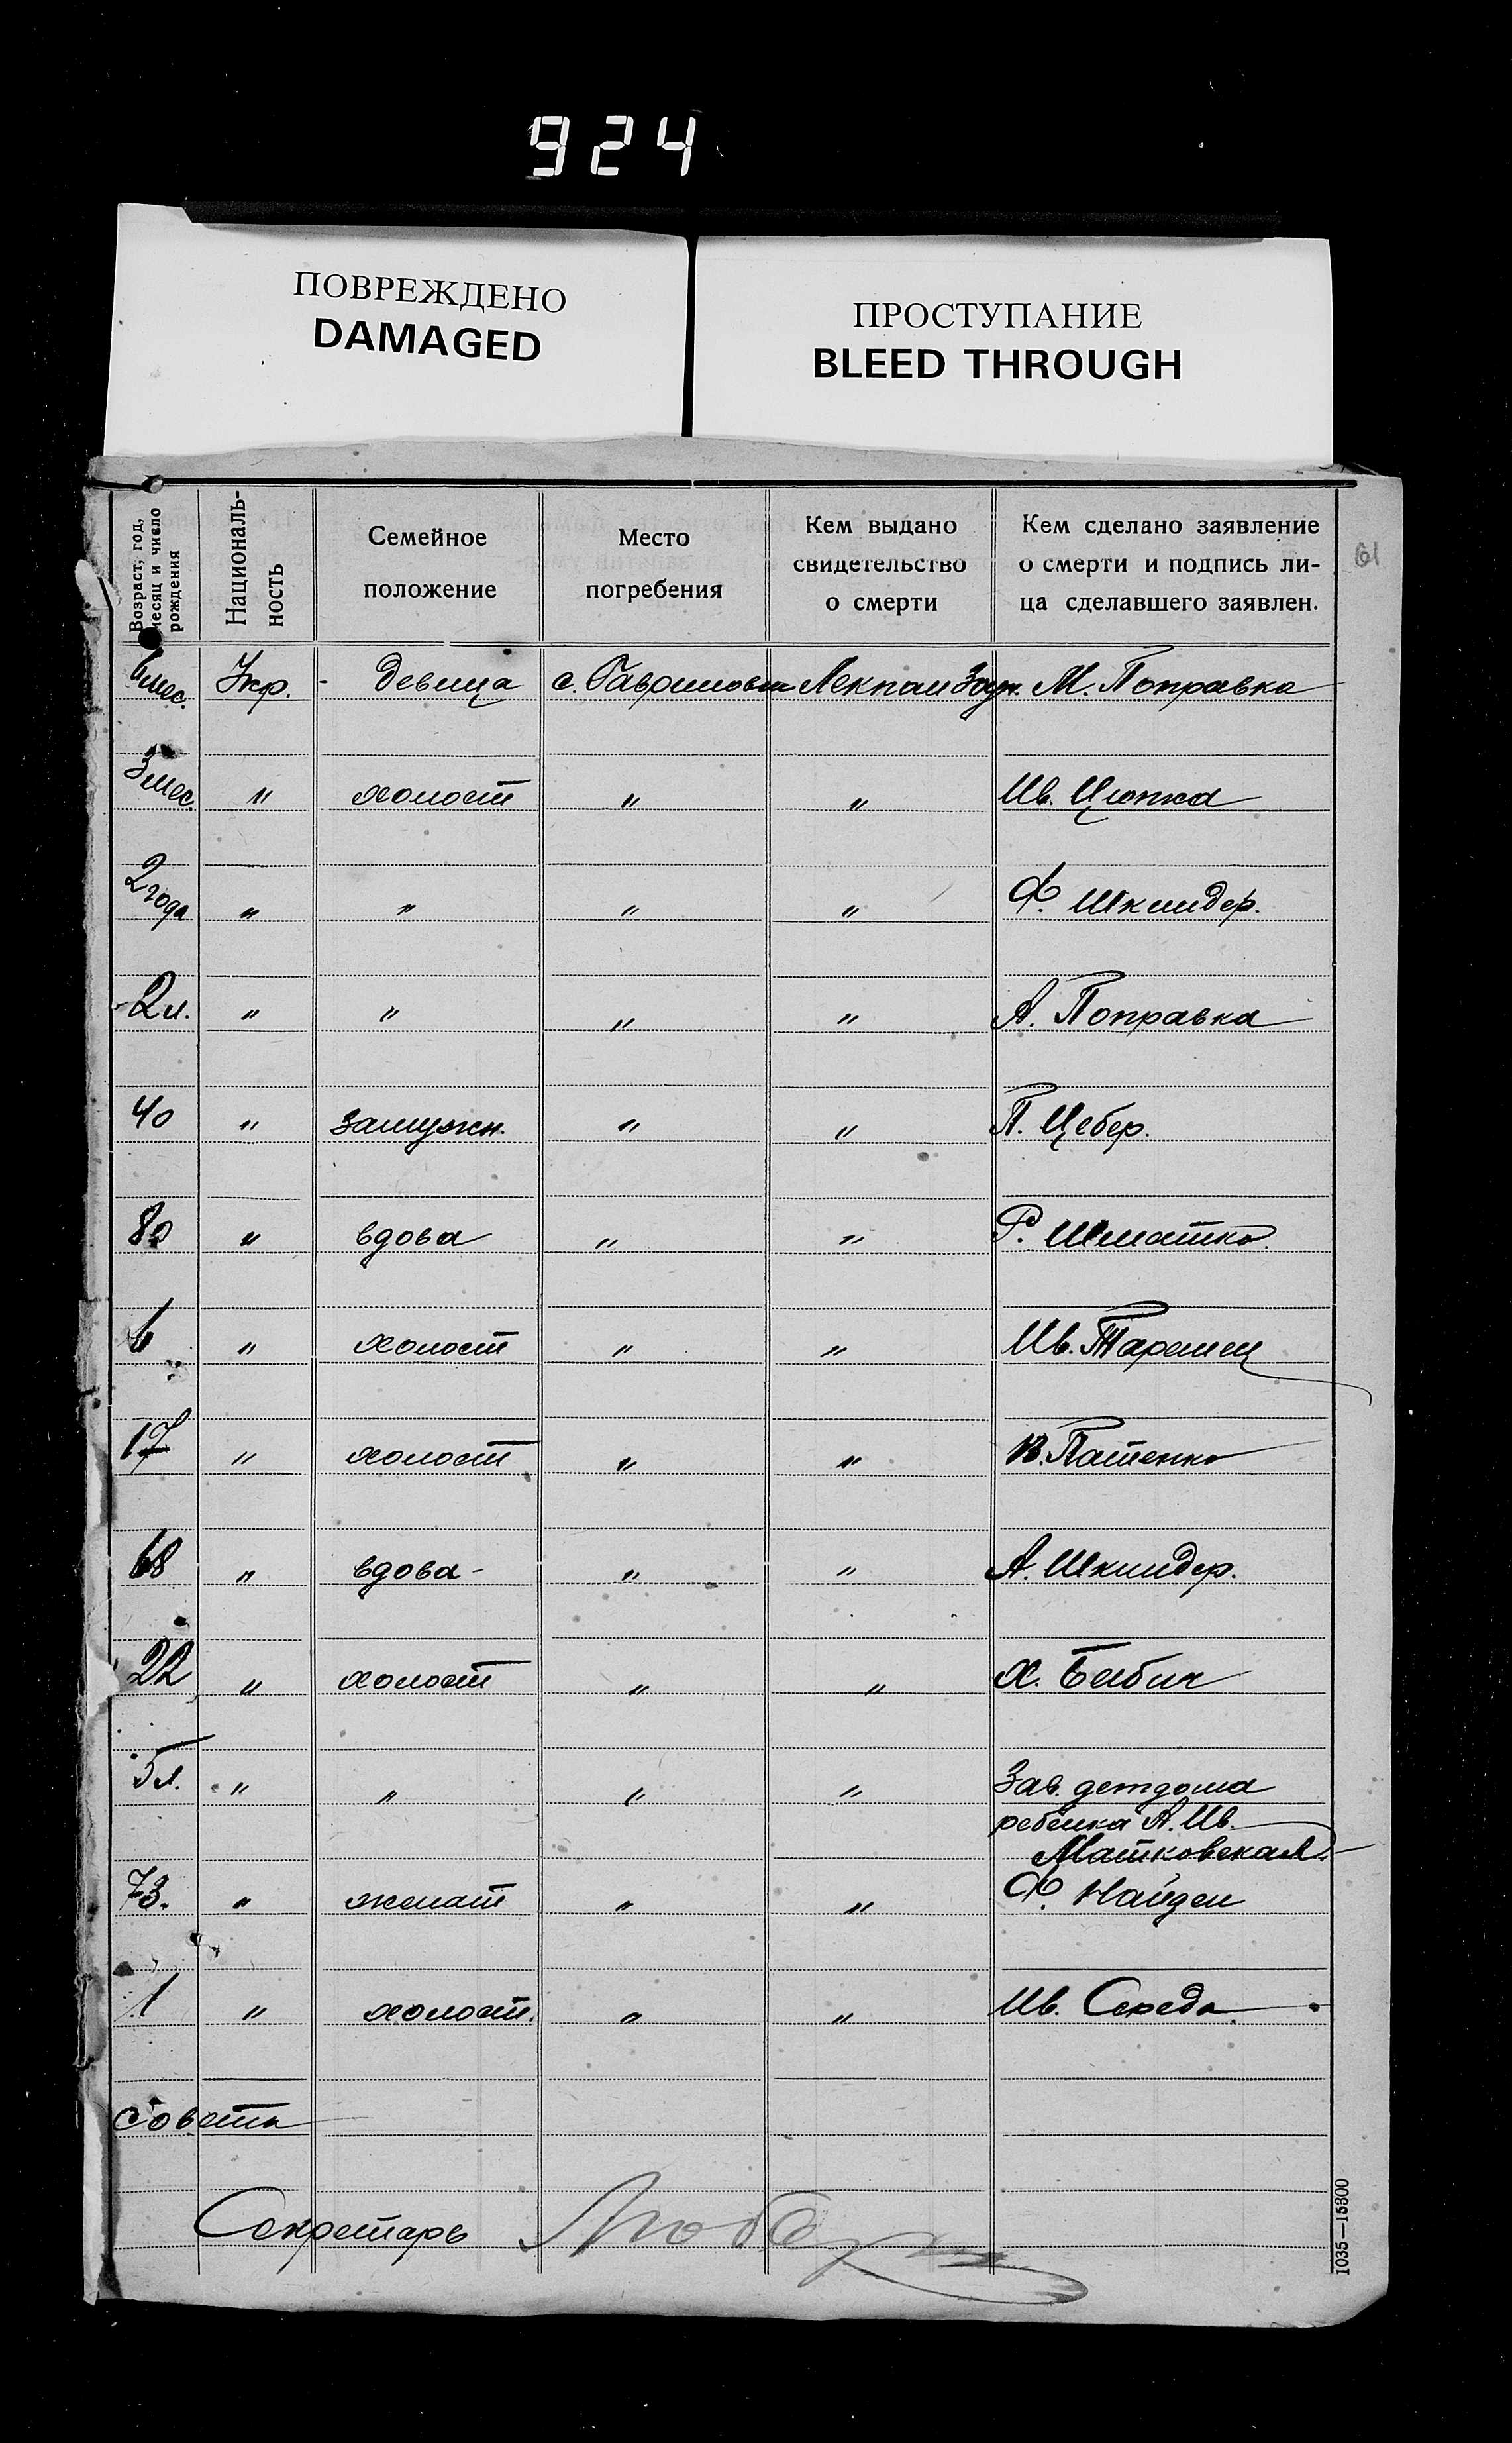 924
ПОВРЕЖДЕНО
DAMAGED
ПРОСТУПАНИЕ
BLEED THROUGH
61
Возраст, год, месяц и число рождения
Националь-
ность
Семейное
положение
Место
погребения
Кем выдано
свидетельство
о смерти
Кем сделано заявление
о смерти и подпись ли-
ца сделавшего заявлен.
6 мес. Укр. - девица с. М. Поправка
3 мес. " холост " " Ив. Цюпка
2 года " " " " Ф.
2 л. " " " " А. Поправка
40 " замужн. " " П. Цебер.
80 " вдова " " Р. Шматко.
6 " холост " " Ив.
17 " холост " " В. Патенко
68 " вдова - " " А.
22 " холост " " Х.
5 л. " " " " Зав. детдома
ребёнка А. Ив.
Матковская
73. " женат " " Ф. Найден
1 " холост. " " Ив. Середа
совета
Секретарь
1035—15300